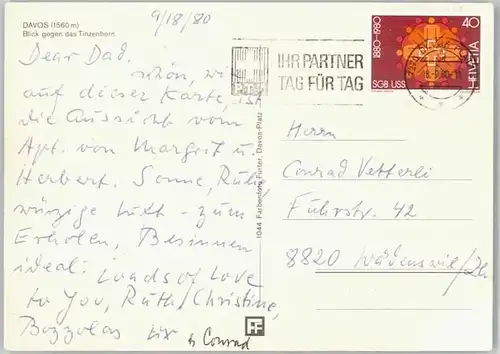 DAVOS (1560 m)
Blick gegen das Tinzenhorn
9/18/80
Dear Dad,
schön, wie
auf dieser Karte, ist
die Aussicht vom
Apt. von Margrit u.
Herbert. Sonne, Ruhe,
würzige Luft - zum
Erholen, Besinnen
ideal: Loads of Love
to You, Ruth, Christine,
Bozzolas
& Conrad
1044 Farbenfoto Furter, Davos-Platz
PTT
IHR PARTNER
TAG FÜR TAG
1880-1980
40
SGB USS
HELVETIA
Herrn
Conrad Vetterli
Fuhrstr. 42
8820 Wädenswil/Zh
FF